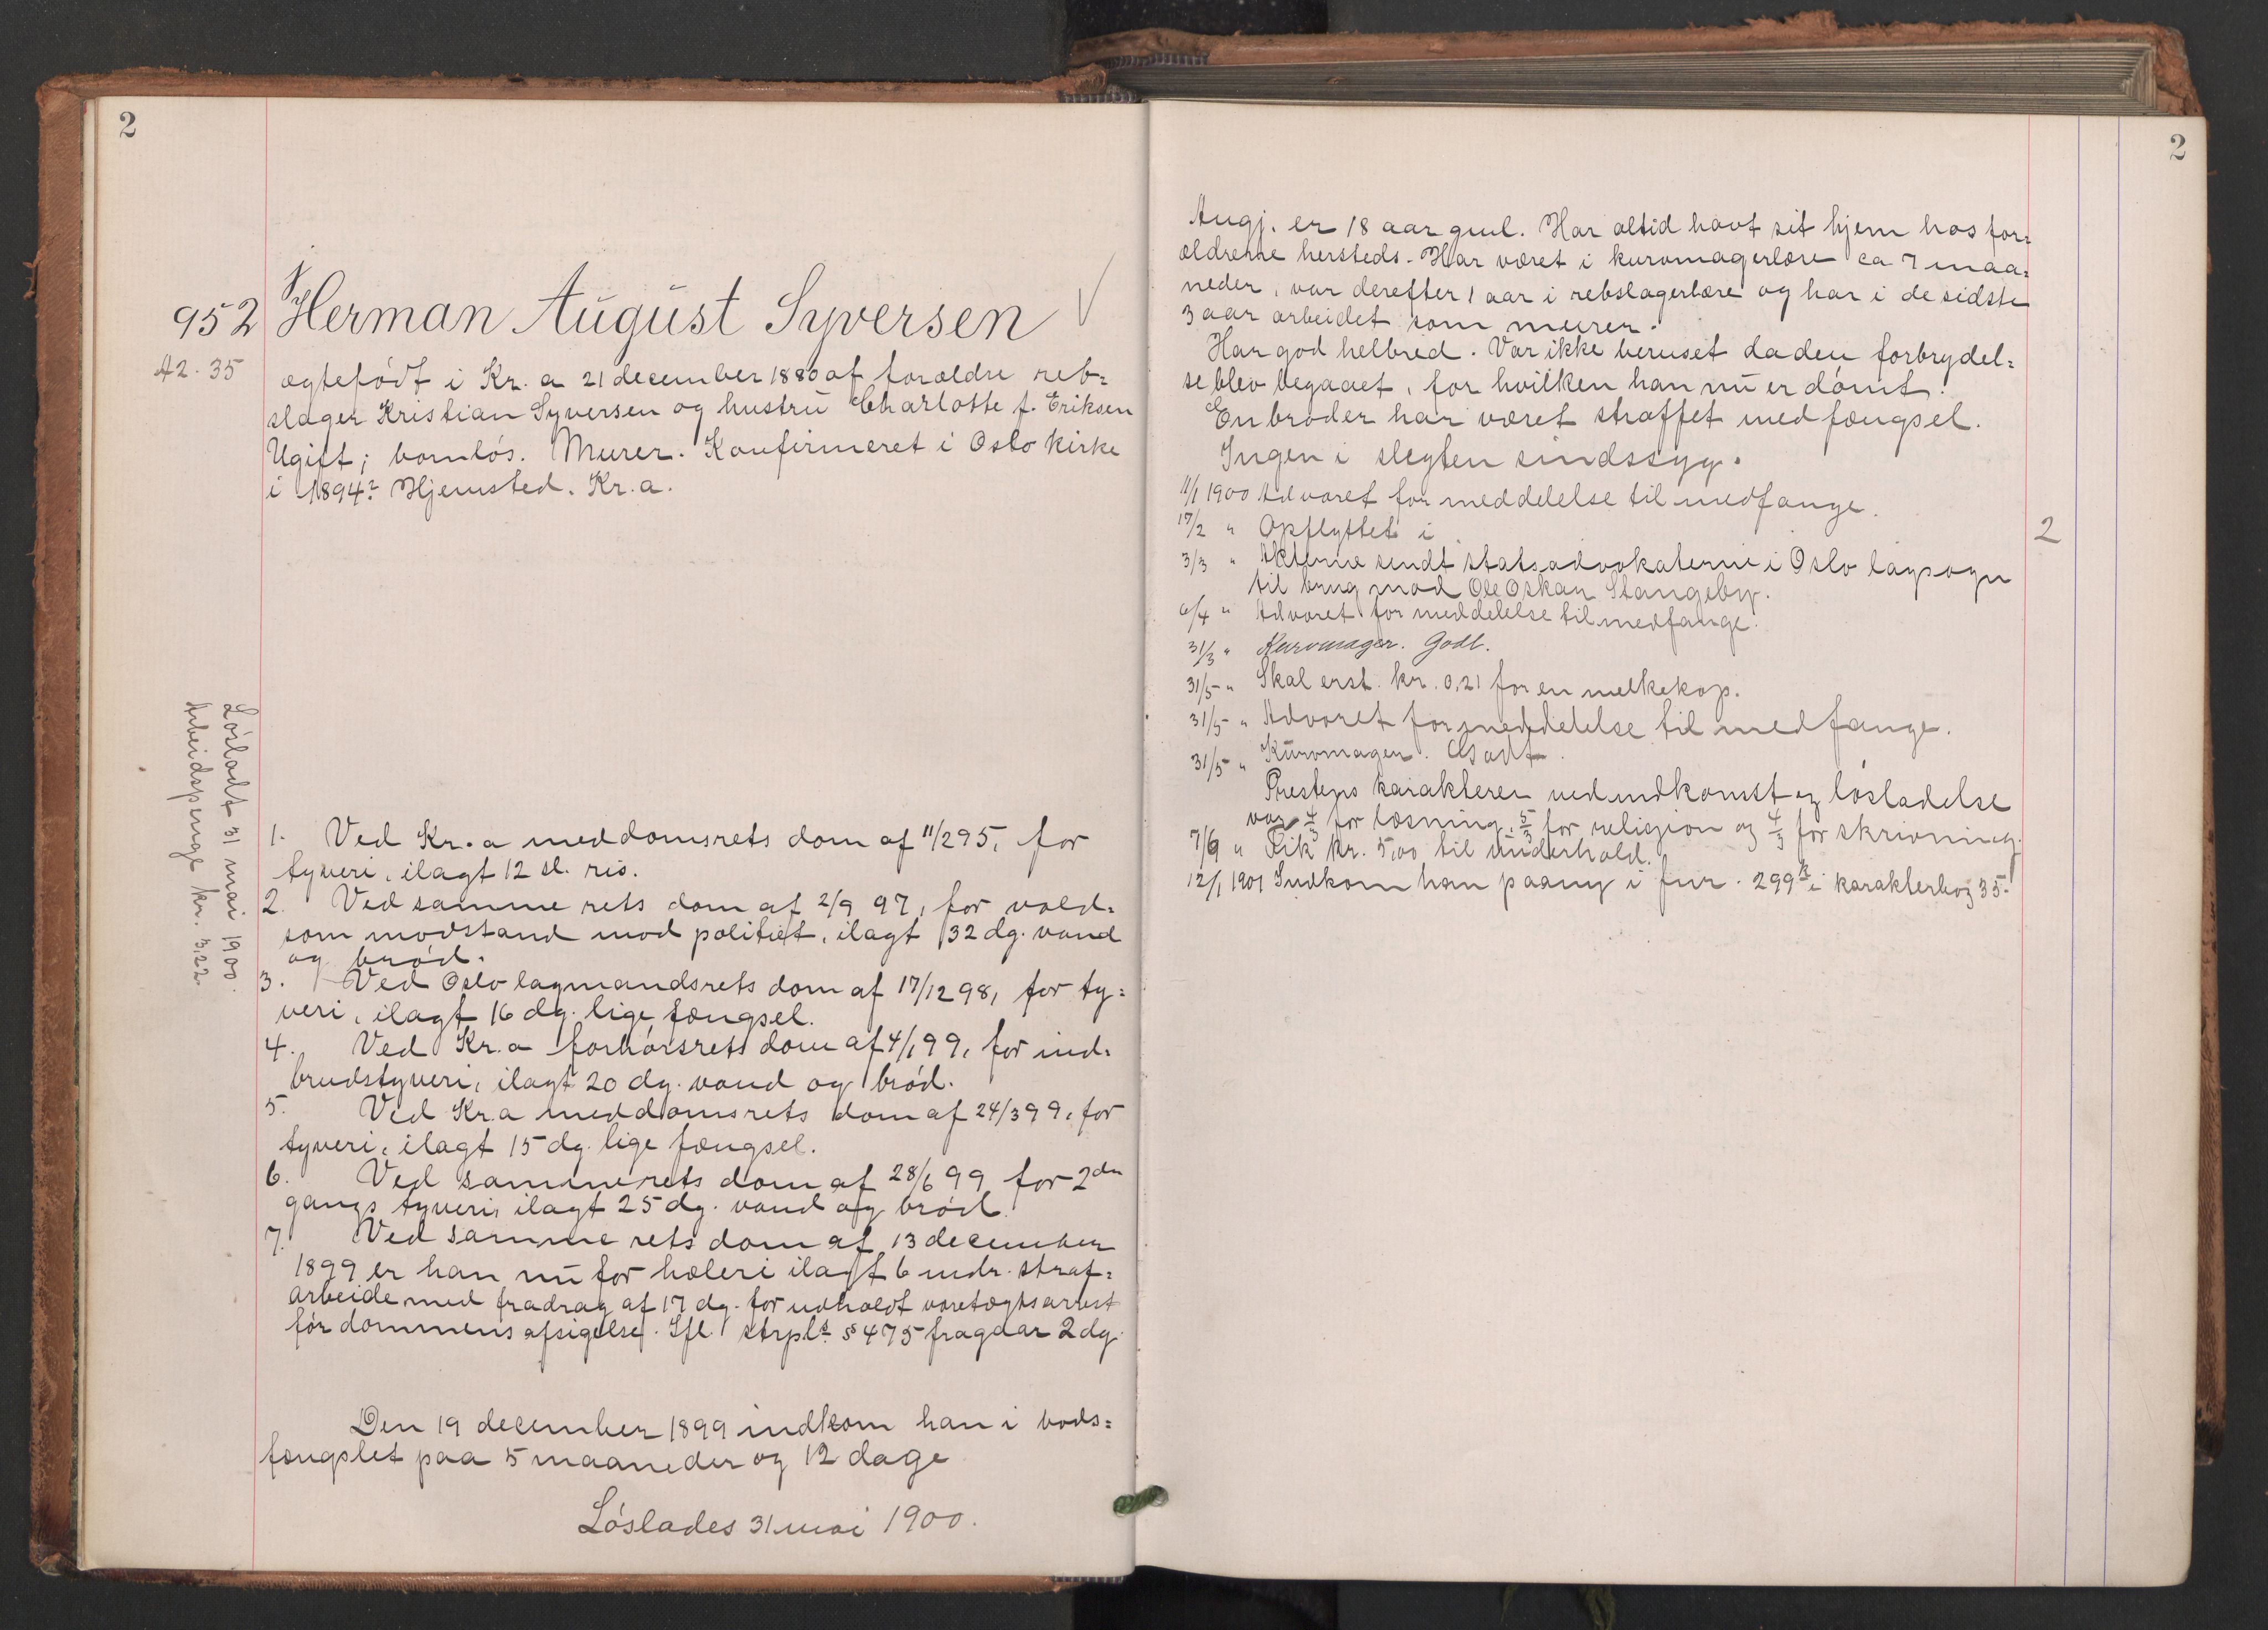 2
952 Herman August Syversen
A2. 35
ægtefødt i Kr.a 21 december 1880 af forældre reb=
slager Kristian Syversen og hustru Charlotte f. Eriksen
Ugift; barnløs. Murer. Konfirmeret i Oslo kirke
i 1894? Hjemsted. Kr.a.
Løsladt 31 mai 1900.
Arbeidspenge kr. 3,22
1. Ved Kr.a meddomsrets dom af 11/2 95, for
tyveri, ilagt 12 sl. ris.
2. Ved samme rets dom af 2/9 97, for vold=
som modstand mod politiet, ilagt 32 dg. vand
og brød.
3. Ved Oslo lagmandsrets dom af 17/12 98, for ty=
veri, ilagt 16 dg. lige fængsel.
4. Ved Kr.a forhørsrets dom af 4/1 99, for ind=
brudstyveri, ilagt 20 dg. vand og brød.
5. Ved Kr.a meddomsrets dom af 24/3 99, for
tyveri, ilagt 15 dg. lige fængsel.
6. Ved samme rets dom af 28/6 99 for 2den
gangs tyveri, ilagt 25 dg. vand og brød.
7. Ved samme rets dom af 13 december
1899 er han nu for hæleri ilagt 6 mdr. straf=
arbeide med fradrag af 17 dg. for udholdt varetægtsarrest
før dommens afsigelse. Ifl. strpls § 475 fragaar 2 dg.
Den 19 december 1899 indkom han i bods=
fængslet paa 5 maaneder og 12 dage
Løslades 31 mai 1900.
2
Angj. er 18 aar gml. Har altid havt sit hjem hos for=
ældrene hersteds. Har været i kurvmagerlære ca 7 maa=
neder, var derefter 1 aar i rebslagerlære og har i de sidste
3 aar arbeidet som murer.
Har god helbred. Var ikke beruset da den forbrydel=
se blev begaaet, for hvilken han nu er dømt.
En broder har været straffet med fængsel.
Ingen i slegten sindssyg.
11/1 1900 Advaret for meddelelse til medfange.
17/2 " Opflyttet i 2
3/3 " Akterne sendt statsadvokaterne i Oslo lagsogn
til brug mod Ole Oskar Stangeby.
6/4 " Advaret for meddelelse til medfange.
31/3 " Kurvmager. Godt.
31/5 " Skal erst. kr. 0,21 for en melkekop.
31/5 " Advaret for meddelelse til medfange.
31/5 " Kurvmager. Godt.
Prestens karakterer ved indkomst og løsladelse
var 4/3 for læsning, 5/3 for religion og 4/3 for skrivning.
7/6 " Fik kr. 5,00 til underhold.
12/1 1901 Indkom han paany i fnr. 299 i karakterbog 35.